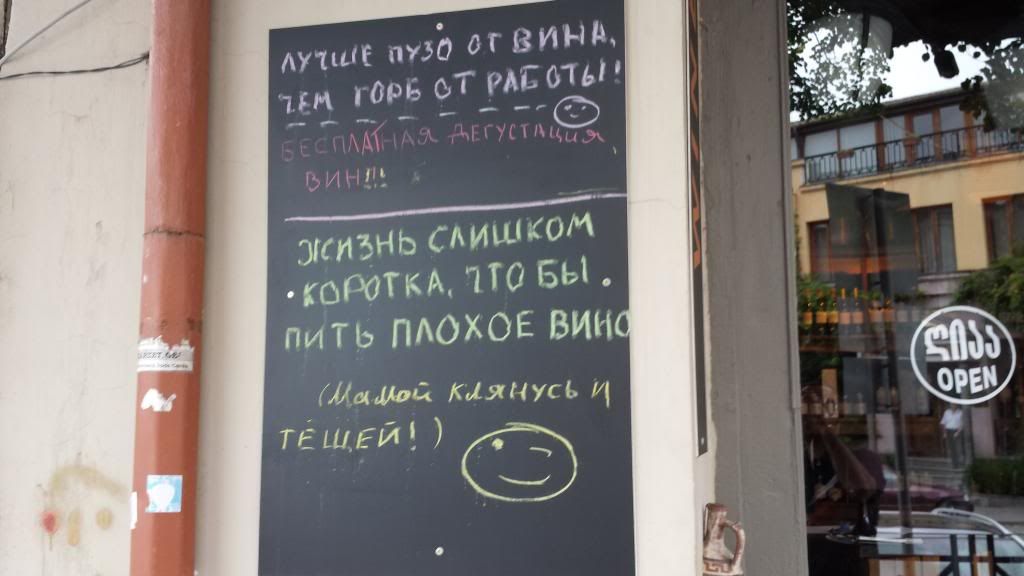 ЛУЧШЕ ПУЗО ОТ ВИНА,
ЧЕМ ГОРБ ОТ РАБОТЫ!
БЕСПЛАТНАЯ ДЕГУСТАЦИЯ
ВИН!!!
ЖИЗНЬ СЛИШКОМ
КОРОТКА, ЧТО БЫ
ПИТЬ ПЛОХОЕ ВИНО
(Мамой клянусь и
ТЁЩЕЙ!)
ღიაა
OPEN